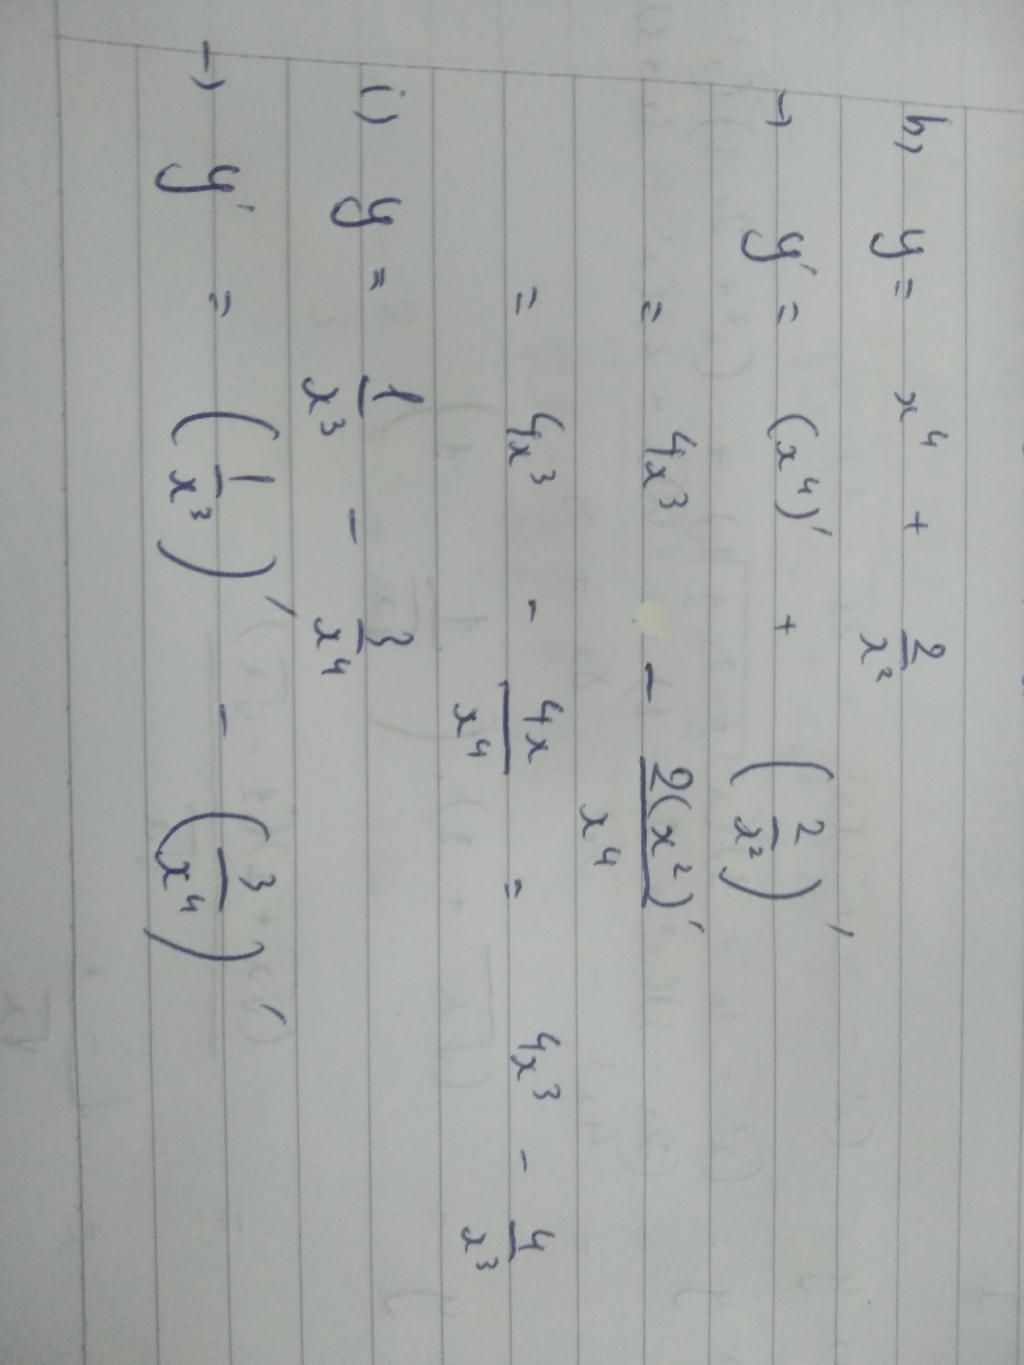 h) y = x⁴ + 2/x²
→ y' = (x⁴)' + (2/x²)'
= 4x³ - 2(x²)'/x⁴
= 4x³ - 4x/x⁴ = 4x³ - 4/x³
i) y = 1/x³ - 3/x⁴
→ y' = (1/x³)' - (3/x⁴)'